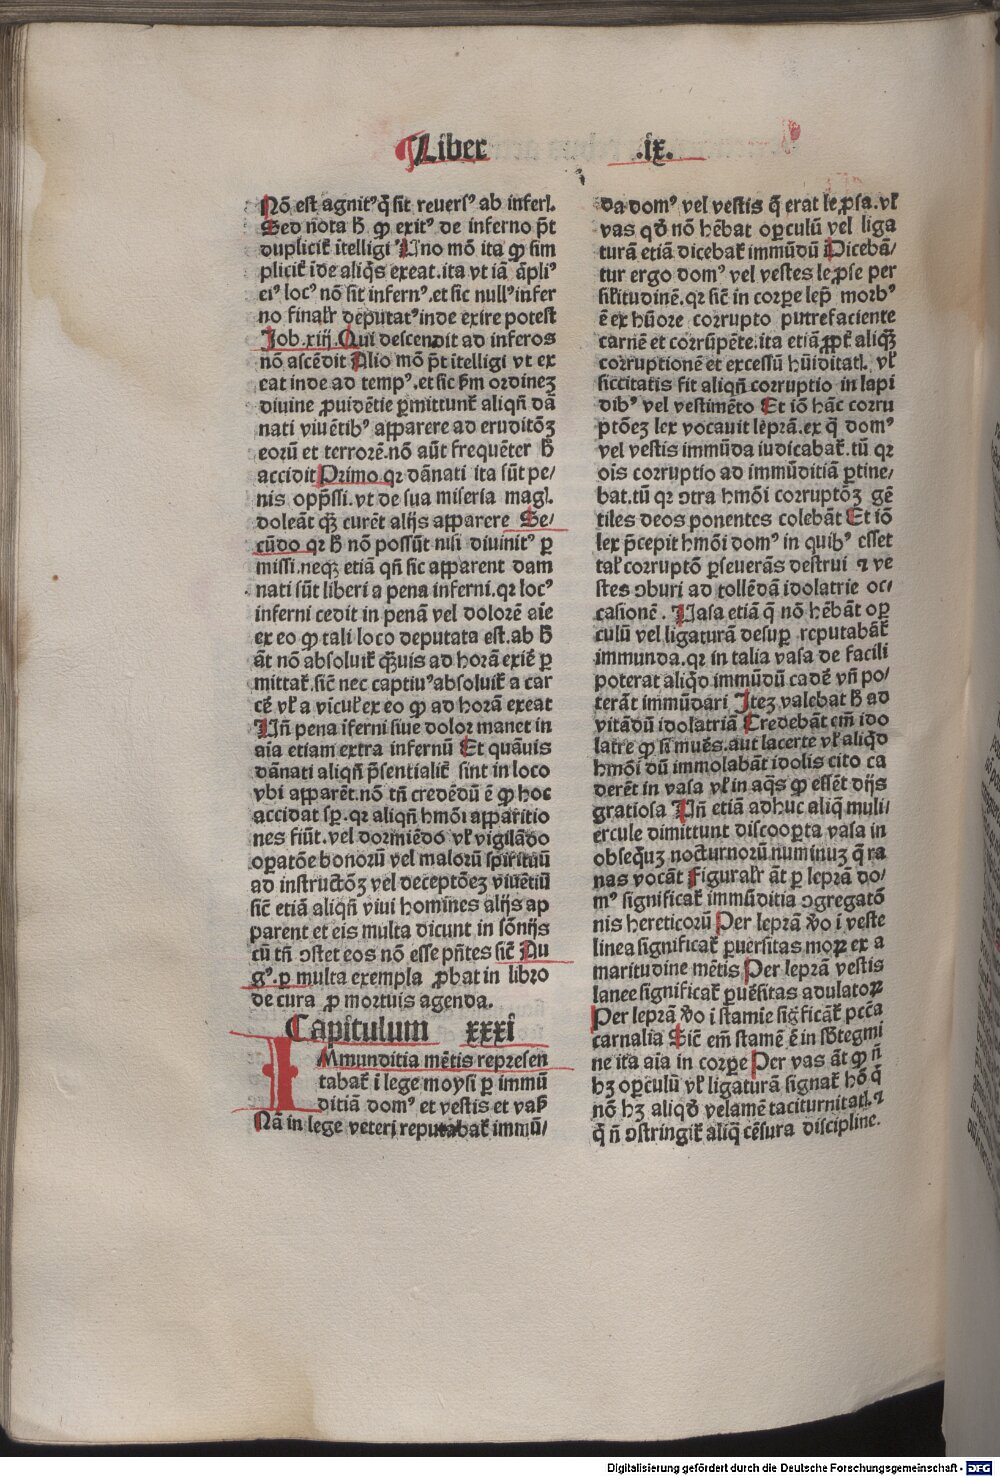 Liber .ix.
Nō est agnitꝰ q̄ sit reuersꝰ ab inferī.
Sed nota ħ ꝙ exitꝰ de inferno pt̄
duplicit̄ ītelligi Uno mō ita ꝙ sim
plicit̄ īde aliq̄s exeat.ita vt iā āpliꝰ
eiꝰ locꝰ nō sit infernꝰ.et sic nullꝰ infer
no finalr̄ deputatꝰ inde exire potest
Job.xiij.Qui descendit ad inferos
nō ascēdit Alio mō pt̄ ītelligi vt ex
eat inde ad tempꝰ.et sic ẜm ordinez
diuine ꝓuidētie ꝑmittunt̄ aliqn̄ dā
nati viuētibꝰ apparere ad eruditōꝫ
eorū et terrorē.nō aūt frequēter ħ
accidit Primo qꝛ dānati ita sūt pe⸗
nis opp̄ssi.vt de sua miseria magī.
doleāt qꝫ̄ curēt alijs apparere Se⸗
cūdo qꝛ ħ nō possūt nisi diuinitꝰ ꝑ
missi.neqꝫ etiā qn̄ sic apparent dam
nati sūt liberi a pena inferni.qꝛ locꝰ
inferni cedit in penā vel dolorē aīe
ex eo ꝙ tali loco deputata est.ab ħ
āt nō absoluit̄ qꝫ̄uis ad horā exiē ꝑ
mittat̄.sic̄ nec captiuꝰ absoluit̄ a car
cē vl̄ a vicul̄ ex eo ꝙ ad horā exeat
Un̄ pena īferni siue dolor manet in
aīa etiam extra infernū Et quāuis
dānati aliqn̄ p̄sentialit̄ sint in loco
vbi apparēt.nō tn̄ credēdū ē ꝙ hoc
accidat sꝑ.qꝛ aliqn̄ hmōi apparitio
nes fiūt.vel dormiēdo vl̄ vigilādo
oꝑatōe bonorū vel malorū spirituū
ad instructōꝫ vel deceptōeꝫ viuētiū
sic̄ etiā aliqn̄ viui homines alijs ap
parent et eis multa dicunt in sōnijs
cū tn̄ ꝯstet eos nō esse pn̄tes sic̄ Au
gꝰ.ꝑ multa exempla ꝓbat in libro
de cura ꝓ mortuis agenda.
Capitulum xxxi
IMmunditia mētis represen
tabat̄ i lege moysi ꝑ immū
ditiā domꝰ et vestis et vas̄
Nā in lege veteri reputabat̄ immū⸗
da domꝰ vel vestis q̄ erat leꝓsa.vl̄
vas qđ nō hēbat oꝑculū vel liga
turā etiā dicebat̄ immūdū Dicebā⸗
tur ergo domꝰ vel vestes leꝓse per
sil̄itudinē.qꝛ sic̄ in corꝑe lep̄ morbꝰ
ē ex hūore corrupto putrefaciente
carnē et corrūpēte.ita etiā ꝓpt̄ aliqꝫ̄
corruptionē et excessū hūiditatī. vl̄
siccitatis fit aliqn̄ corruptio in lapi
dibꝰ vel vestimēto Et iō hāc corru
ptōeꝫ lex vocauit leprā.ex q̄ domꝰ
vel vestis immūda iudicabat̄.tū qꝛ
oīs corruptio ad immūditiā ꝑtine⸗
bat.tū qꝛ ꝯtra hmōi corruptōꝫ gē
tiles deos ponentes colebāt Et iō
lex p̄cepit hmōi domꝰ in quibꝰ esset
tal̄ corruptō ꝑseuerās destrui ⁊ ve
stes ꝯburi ad tollēdā idolatrie oc⸗
casionē . Uasa etiā q̄ nō hēbāt oꝑ
culū vel ligaturā desuꝑ reputabāt̄
immunda.qꝛ in talia vasa de facili
poterat aliqđ immūdū cadē vn̄ po⸗
terāt immūdari Iteꝫ valebat ħ ad
vitādū idolatriā Credebāt em̄ ido
latre ꝙ si mures.aut lacerte vl̄ aliqđ
hmōi dū immolabāt idolis cito ca
derēt in vasa vl̄ in aq̄s ꝙ essēt dijs
gratiosa Un̄ etiā adhuc aliq̄ muli⸗
ercule dimittunt discooꝑta vasa in
obseqꝫ̄ nocturnorū numinuꝫ q̄ ra
nas vocāt Figuralr̄ āt ꝑ leprā do⸗
mꝰ significat̄ immūditia ꝯgregatō
nis hereticorū Per leprā v̄o i veste
linea significat̄ ꝑuersitas moꝝ ex a
maritudine mētis Per leprā vestis
lanee significat̄ ꝑuēsitas adulatoꝝ
Per leprā v̄o i stamie significāt̄ pcc̄a
carnalia Sic̄ em̄ stamē ē in sb̄tegmi
ne ita aīa in corꝑe Per vas āt ꝙ n̄
hꝫ oꝑculū vl̄ ligaturā signat̄ hō q̄
nō hꝫ aliqđ velamē taciturnitatī.⁊
q̄ n̄ ꝯstringit̄ aliq̄ cēsura discipline.
Digitalisierung gefördert durch die Deutsche Forschungsgemeinschaft - DFG